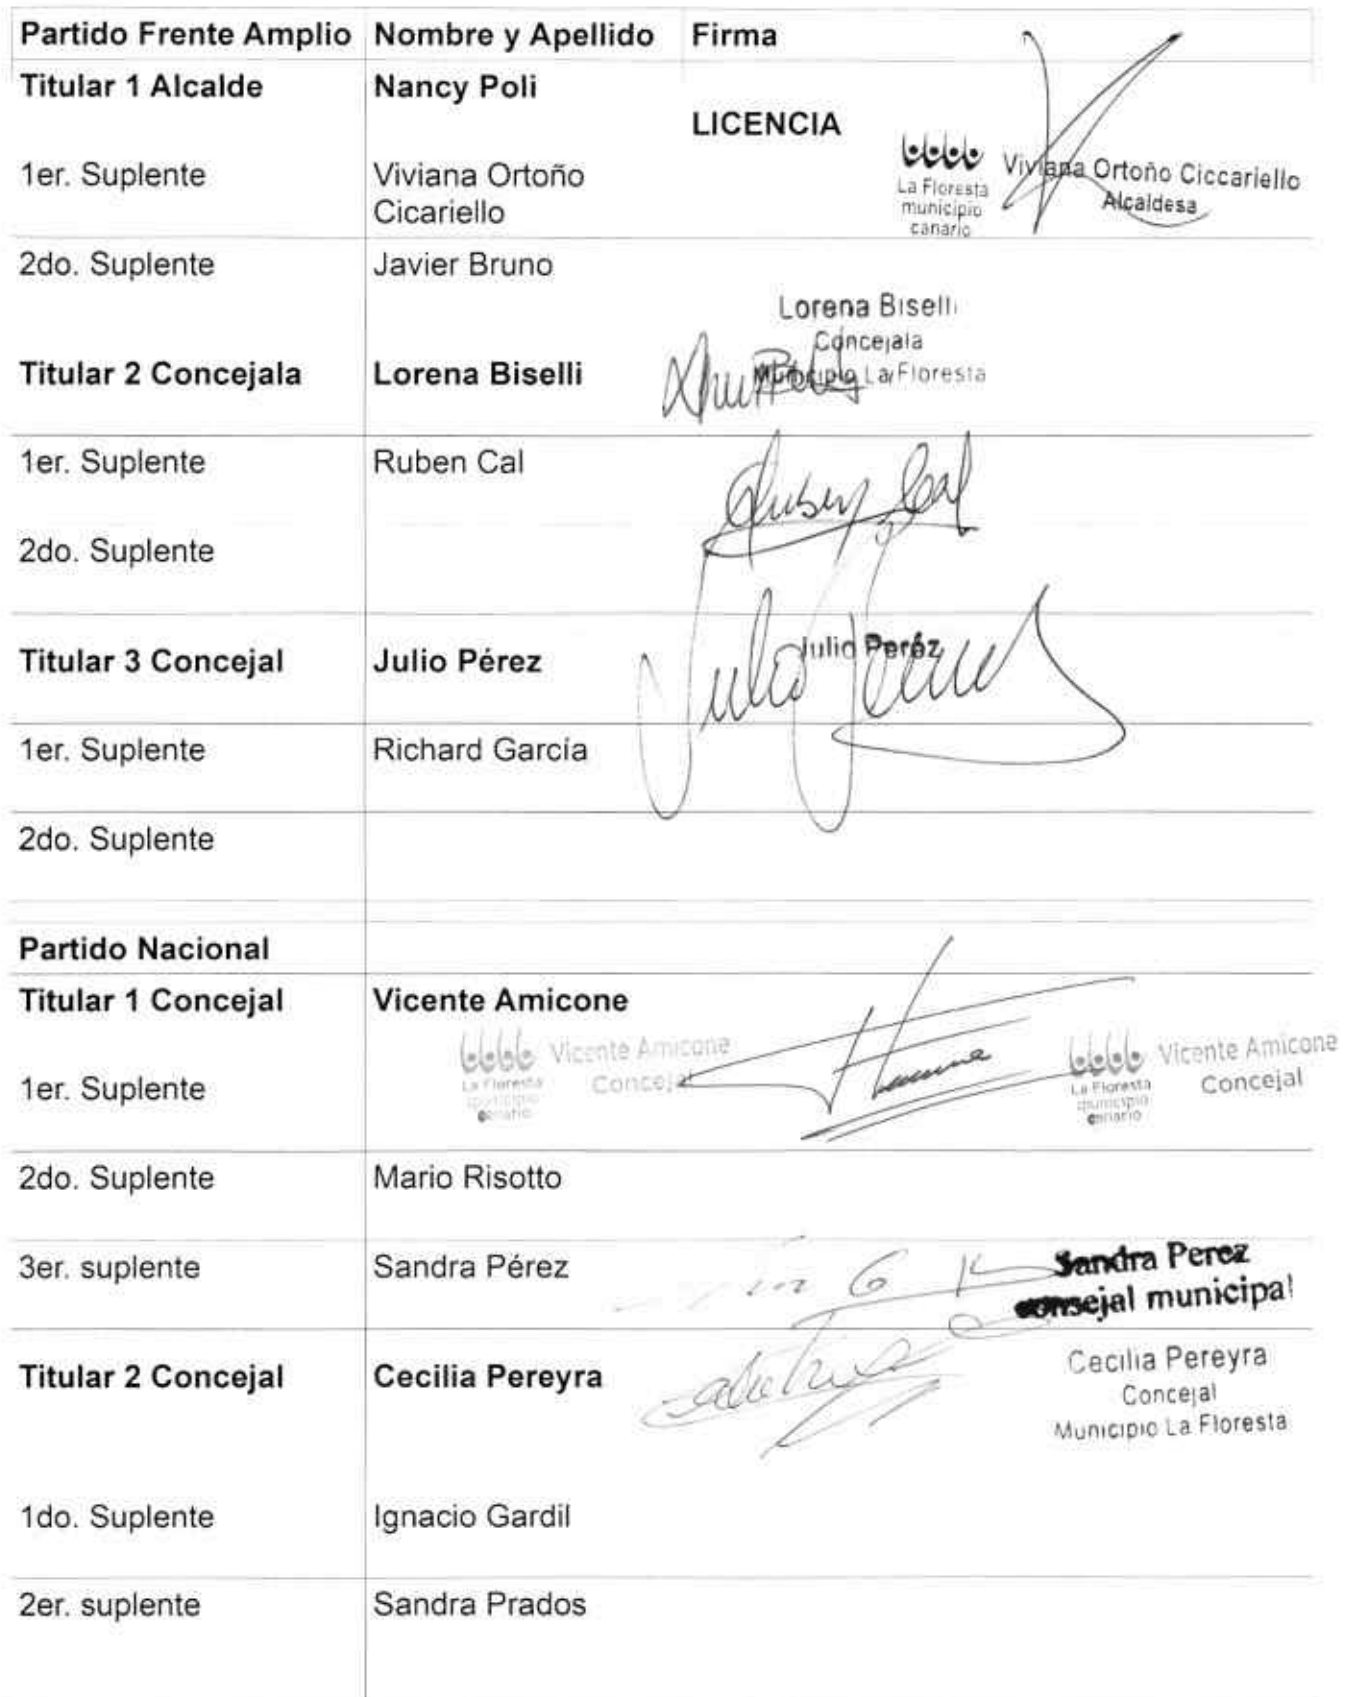 Partido Frente Amplio Nombre y Apellido Firma
Titular 1 Alcalde Nancy Poli
LICENCIA
1er. Suplente Viviana Ortoño
Cicariello
La Floresta
municipio
canario
Viviana Ortoño Ciccariello
Alcaldesa
2do. Suplente Javier Bruno
Lorena Biselli
Concejala
Municipio La Floresta
Titular 2 Concejala Lorena Biselli
1er. Suplente Ruben Cal
Ruben Cal
2do. Suplente
Titular 3 Concejal Julio Pérez
Julio Peréz
Julio Perez
1er. Suplente Richard García
2do. Suplente
Partido Nacional
Titular 1 Concejal Vicente Amicone
La Floresta
municipio
canario
Vicente Amicone
Concejal
La Floresta
municipio
canario
Vicente Amicone
Concejal
1er. Suplente
2do. Suplente Mario Risotto
3er. suplente Sandra Pérez
Sandra Perez
consejal municipal
Titular 2 Concejal Cecilia Pereyra
Cecilia Pereyra
Concejal
Municipio La Floresta
1do. Suplente Ignacio Gardil
2er. suplente Sandra Prados